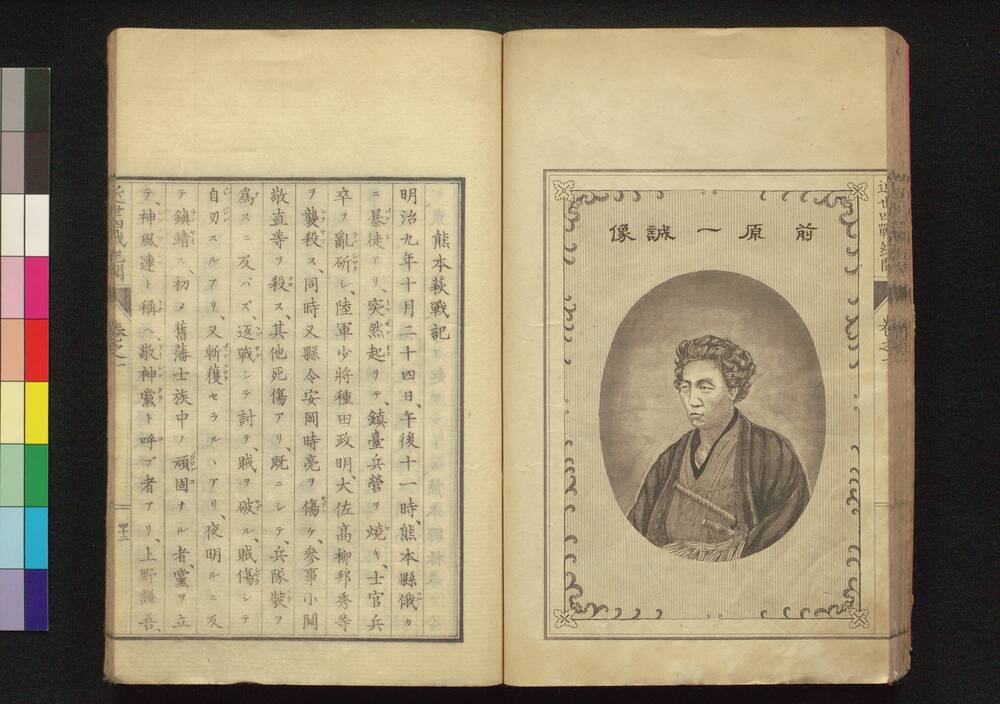 近世四戰紀聞
卷之一
前原一誠像
熊本萩戰記
明治九年十月二十四日、午後十一時、熊本縣俄カ
ニ暴徒アリ、突然起リテ、鎮臺兵營ヲ燒キ、士官兵
卒ヲ亂斫シ、陸軍少將種田政明、大佐高柳邦秀等
ヲ襲殺ス、同時又縣令安岡時亮ヲ傷ケ、參事小關
敬直等ヲ殺ス、其他死傷アリ、既ニシテ、兵隊裝ヲ
爲スニ及バズ、返戰シテ討テ、賊ヲ破ル、賊傷シテ
自刃スルアリ、又斬獲セラルヽアリ、夜明ルニ及
テ鎮靖ス、初メ舊藩士族中ノ頑固ナル者、黨ヲ立
テ、神風連ト稱ヘ、敬神黨ト呼ブ者アリ、上野謙吾、
近世四戰紀聞
卷之一
四十三